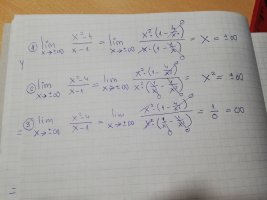 ① lim x→±∞ x²-4/x-1 = lim x→±∞ x²·(1-4/x²)/x·(1-1/x) = x = ±∞
② lim x→±∞ x²-4/x-1 = lim x→±∞ x²·(1-4/x²)/x²·(1/x-1/x²) = x² = ±∞
③ lim x→±∞ x²-4/x-1 = lim x→±∞ x²·(1-4/x²)/x²·(1/x-1/x²) = 1/0 = ∞